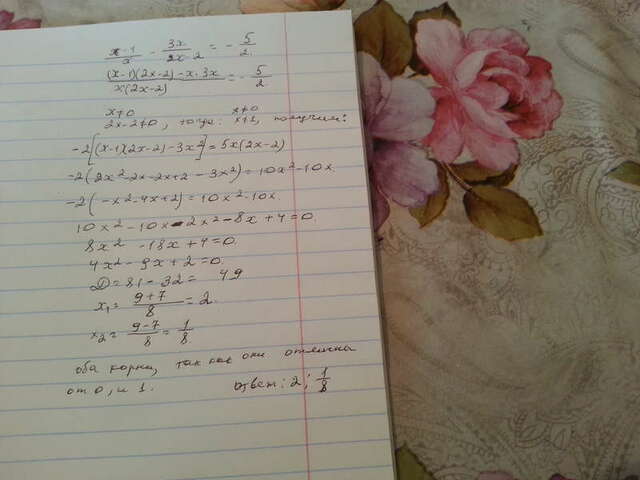 x-1/x - 3x/2x-2 = - 5/2
(x-1)(2x-2) - x·3x / x(2x-2) = - 5/2
x≠0 x≠0
2x-2≠0, тогда: x≠1, получим:
-2[(x-1)(2x-2)-3x²] = 5x(2x-2)
-2(2x²-2x-2x+2-3x²) = 10x²-10x
-2(-x²-4x+2) = 10x²-10x
10x²-10x-2x²-8x+4=0
8x²-18x+4=0
4x²-9x+2=0
D=81-32= 49
x₁= 9+7/8 = 2
x₂= 9-7/8 = 1/8
оба корни, так как они отличны
от 0, и 1. ответ: 2; 1/8